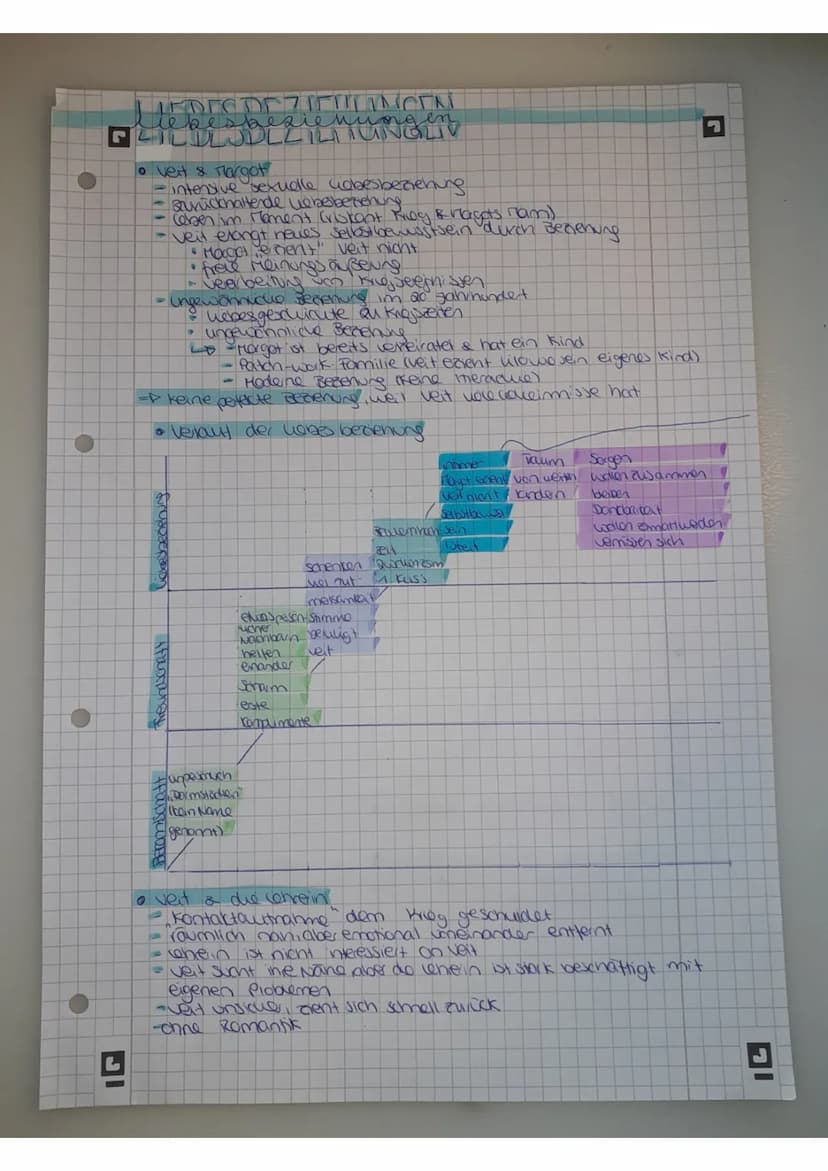 Liebesbeziehungen
Veit & Margot
- intensive sexuelle Liebesbeziehung
- zurückhaltende Liebesbeziehung
- Leben im Moment (riskant Krieg & Magots Mann)
- Veit erlangt neues Selbstbewusstsein durch Beziehung
• Margot „erzieht" Veit nicht
• freie Meinungsäußerung
• Verarbeitung von Kriegsereignissen
- ungewöhnliche Beziehung im 20 Jahrhundert
• Liebesgeschichte zu Kriegszeiten
• ungewöhnliche Beziehung
↳ - Margot ist bereits verheiratet & hat ein Kind
- Patch-work-Familie (Veit erzieht Lilo wo sein eigenes Kind)
- Moderne Beziehung (keine
=> keine perfekte Beziehung, weil Veit hat
• Verlauf der Liebesbeziehung
Liebesbeziehung
Freundschaft
Bekanntschaft
Traum
von
Kindern
Sorgen
wollen zusammen
bleiben
Dankbarkeit
wollen
vermissen sich
Margot erzieht
Veit nicht
Selbstbewusst-
sein
zeit
1. Kuss
schenken
Stimme
beruhigt
Veit
Nachbarn
helfen
einander
Scham
erste
Komplimente
„Darmstädterin"
(kein Name
genannt)
• Veit & die Lehrerin
- „Kontaktaufnahme" dem Krieg geschuldet
- räumlich nah, aber emotional voneinander entfernt
- Lehrerin ist nicht interessiert an Veit
- Veit sucht ihre Nähe aber die Lehrerin ist stark beschäftigt mit
eigenen Problemen
- Veit unsicher, zieht sich schnell zurück
- ohne Romantik